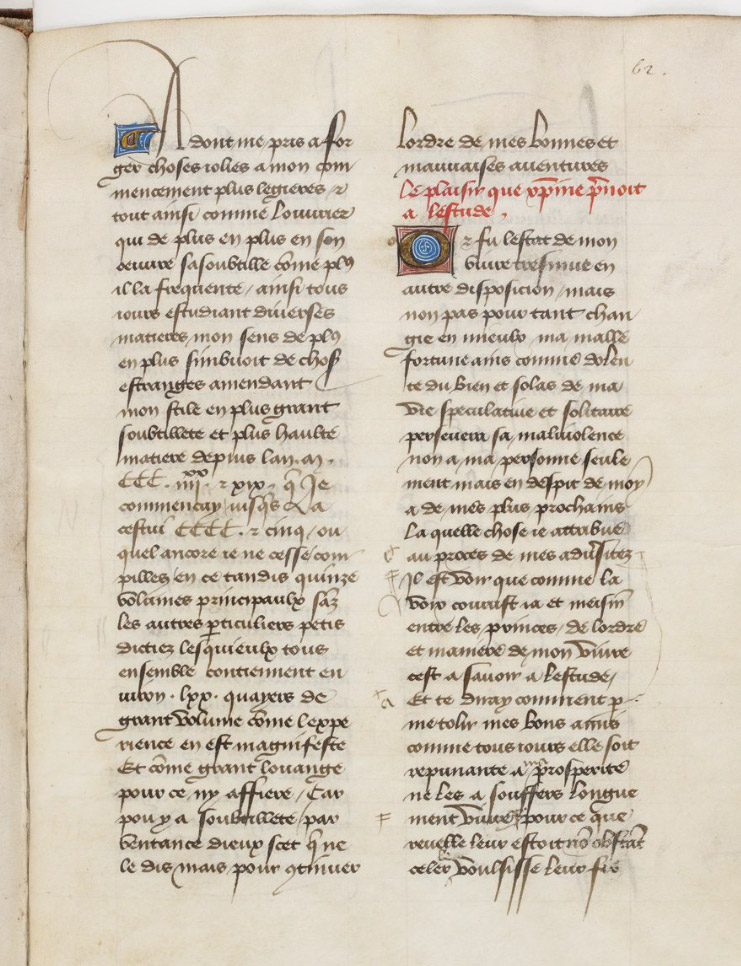 62.
Adont me pris a for
ger choses iolies a mon com
mencement plus legieres &
tout ainsi comme louurier
qui de plus en plus en son
oeuure sasoubtille come plus
il la frequente / ainsi tous
iours estudiant diuerses
matieres mon sens de plus
en plus simbuoit de choses
estranges amendant
mon stile en plus grant
soubtillete et plus haulte
matiere depuis lan . m .
CCC . iiii xx . & xix . que Je
commencay iusques a
cestui CCCC . & cinq / ou
quel ancore ie ne cesse com
pilles / en ce tandis quinze
volumes principaulx sans
les autres particuliers petis
dictiez lesquieulx tous
ensemble contiennent en
uiron . lxx . quayers de
grant volume come lexpe
rience en est magnifeste
Et come grant louange
pour ce ny affiere / Car
pou y a soubtillete / par
ventance dieux scet que ne
le dis mais pour continuer
lordre de mes bonnes et
mauuaises auentures
Le plaisir que xpine prenoit
a lestude .
Or fu lestat de mon
viure tresmue en
autre disposicion / mais
non pas pour tant chan
gie en mieulx ma malle
fortune ains comme dolen
te du bien et solas de ma
vie speculatiue et solitaire
perseuera sa maliuolence
non a ma personne seule
ment mais en despit de moy
a de mes plus prochains
la quelle chose ie attribue
au proces de mes aduersitez
Il est voir que comme la
voix courust ia et mesmes
entre les princes / de lordre
et maniere de mon viure
cest a sauoir a lestude /
Et te diray comment par
me tolir mes bons amis
comme tous iours elle soit
repunante a ma prosperite
ne les a souffers longue
ment viure / pour ce que
reuelle leur estoit non obstant
celer voulsisse leur fis